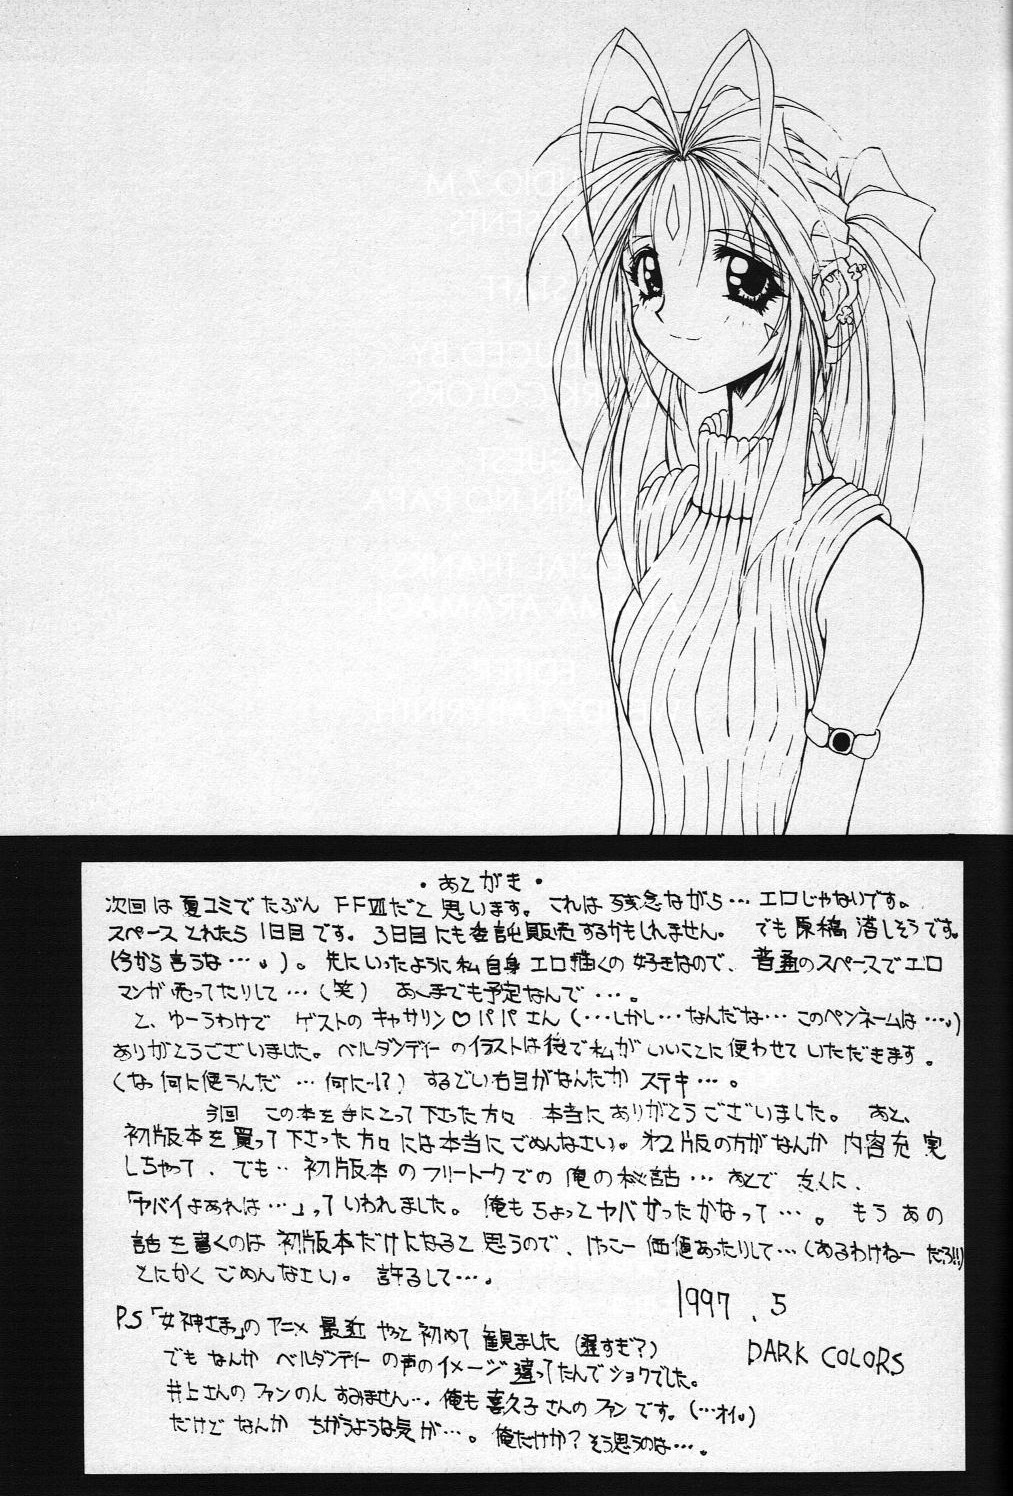 ・あとがき・
次回は夏コミでたぶん FFⅦだと思います。これは残念ながら… エロじゃないです。
スペースとれたら1日目です。3日目にも委託販売するかもしれません。 でも原稿落しそうです。
(今から言うな…。)。先にいったように私自身エロ描くの好きなので、普通のスペースでエロ
マンガ売ってたりして…(笑) あくまでも予定なんで…。
と、ゆーうわけで ゲストのキャサリン♡パパさん(…しかし…なんだな…このペンネームは…。)
ありがとうございました。ベルダンディーのイラストは後で私がいいことに使わせていただきます。
(なっ何に使うんだ …何に…!?) するどい右目がなんだか ステキ…。
今回 この本を手にとって下さった方々 本当にありがとうございました。 あと、
初版本を買って下さった方々には本当にごめんなさい。オ2版の方がなんか 内容充実
しちゃって、でも… 初版本のフリートークでの俺の秘話… あとで 友くに、
「ヤバイよあれは…」っていわれました。俺もちょっとヤバかったかなって…。もう あの
話を書くのは 初版本だけになると思うので、けっこー価値あったりして…(あるわけねー だろ!!)
とにかくごめんなさい。 許るして…。
1997.5
DARK COLORS
P.S「女神さまっ」のアニメ最近 やっと初めて観ました(遅すぎ?)
でもなんか ベルダンディーの声のイメージ違ってたんでショクでした。
井上さんのファンの人すみません…。俺も喜久子さんのファンです。(…オイ。)
だけどなんか ちがうような気が…。俺だけか?そう思うのは…。